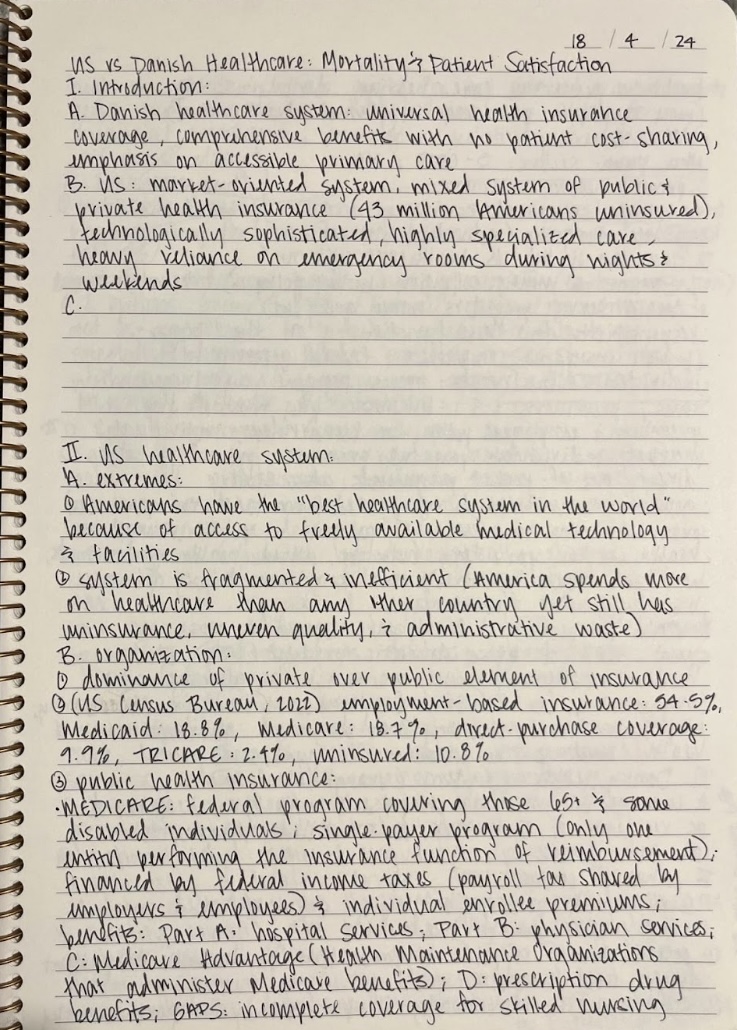 18 / 4 / 24
US vs Danish Healthcare: Mortality & Patient Satisfaction
I. Introduction:
A. Danish healthcare system: universal health insurance
coverage, comprehensive benefits with no patient cost-sharing,
emphasis on accessible primary care
B. US: market-oriented system, mixed system of public &
private health insurance (43 million Americans uninsured),
technologically sophisticated, highly specialized care,
heavy reliance on emergency rooms during nights &
weekends
C.
II. US healthcare system:
A. extremes:
① Americans have the "best healthcare system in the world"
because of access to freely available medical technology
& facilities
② system is fragmented & inefficient (America spends more
on healthcare than any other country yet still has
uninsurance, uneven quality, & administrative waste)
B. organization:
① dominance of private over public element of insurance
② (US Census Bureau, 2022) employment-based insurance: 54.5%,
Medicaid: 18.8%, Medicare: 18.7%, direct-purchase coverage:
9.9%, TRICARE: 2.4%, uninsured: 10.8%
③ public health insurance:
·MEDICARE: federal program covering those 65+ & some
disabled individuals; single-payer program (only one
entity performing the insurance function of reimbursement);
financed by federal income taxes (payroll tax shared by
employers & employees) & individual enrollee premiums;
benefits: Part A: hospital services; Part B: physician services;
C: Medicare Advantage (Health Maintenance Organizations
that administer Medicare benefits); D: prescription drug
benefits; GAPS: incomplete coverage for skilled nursing